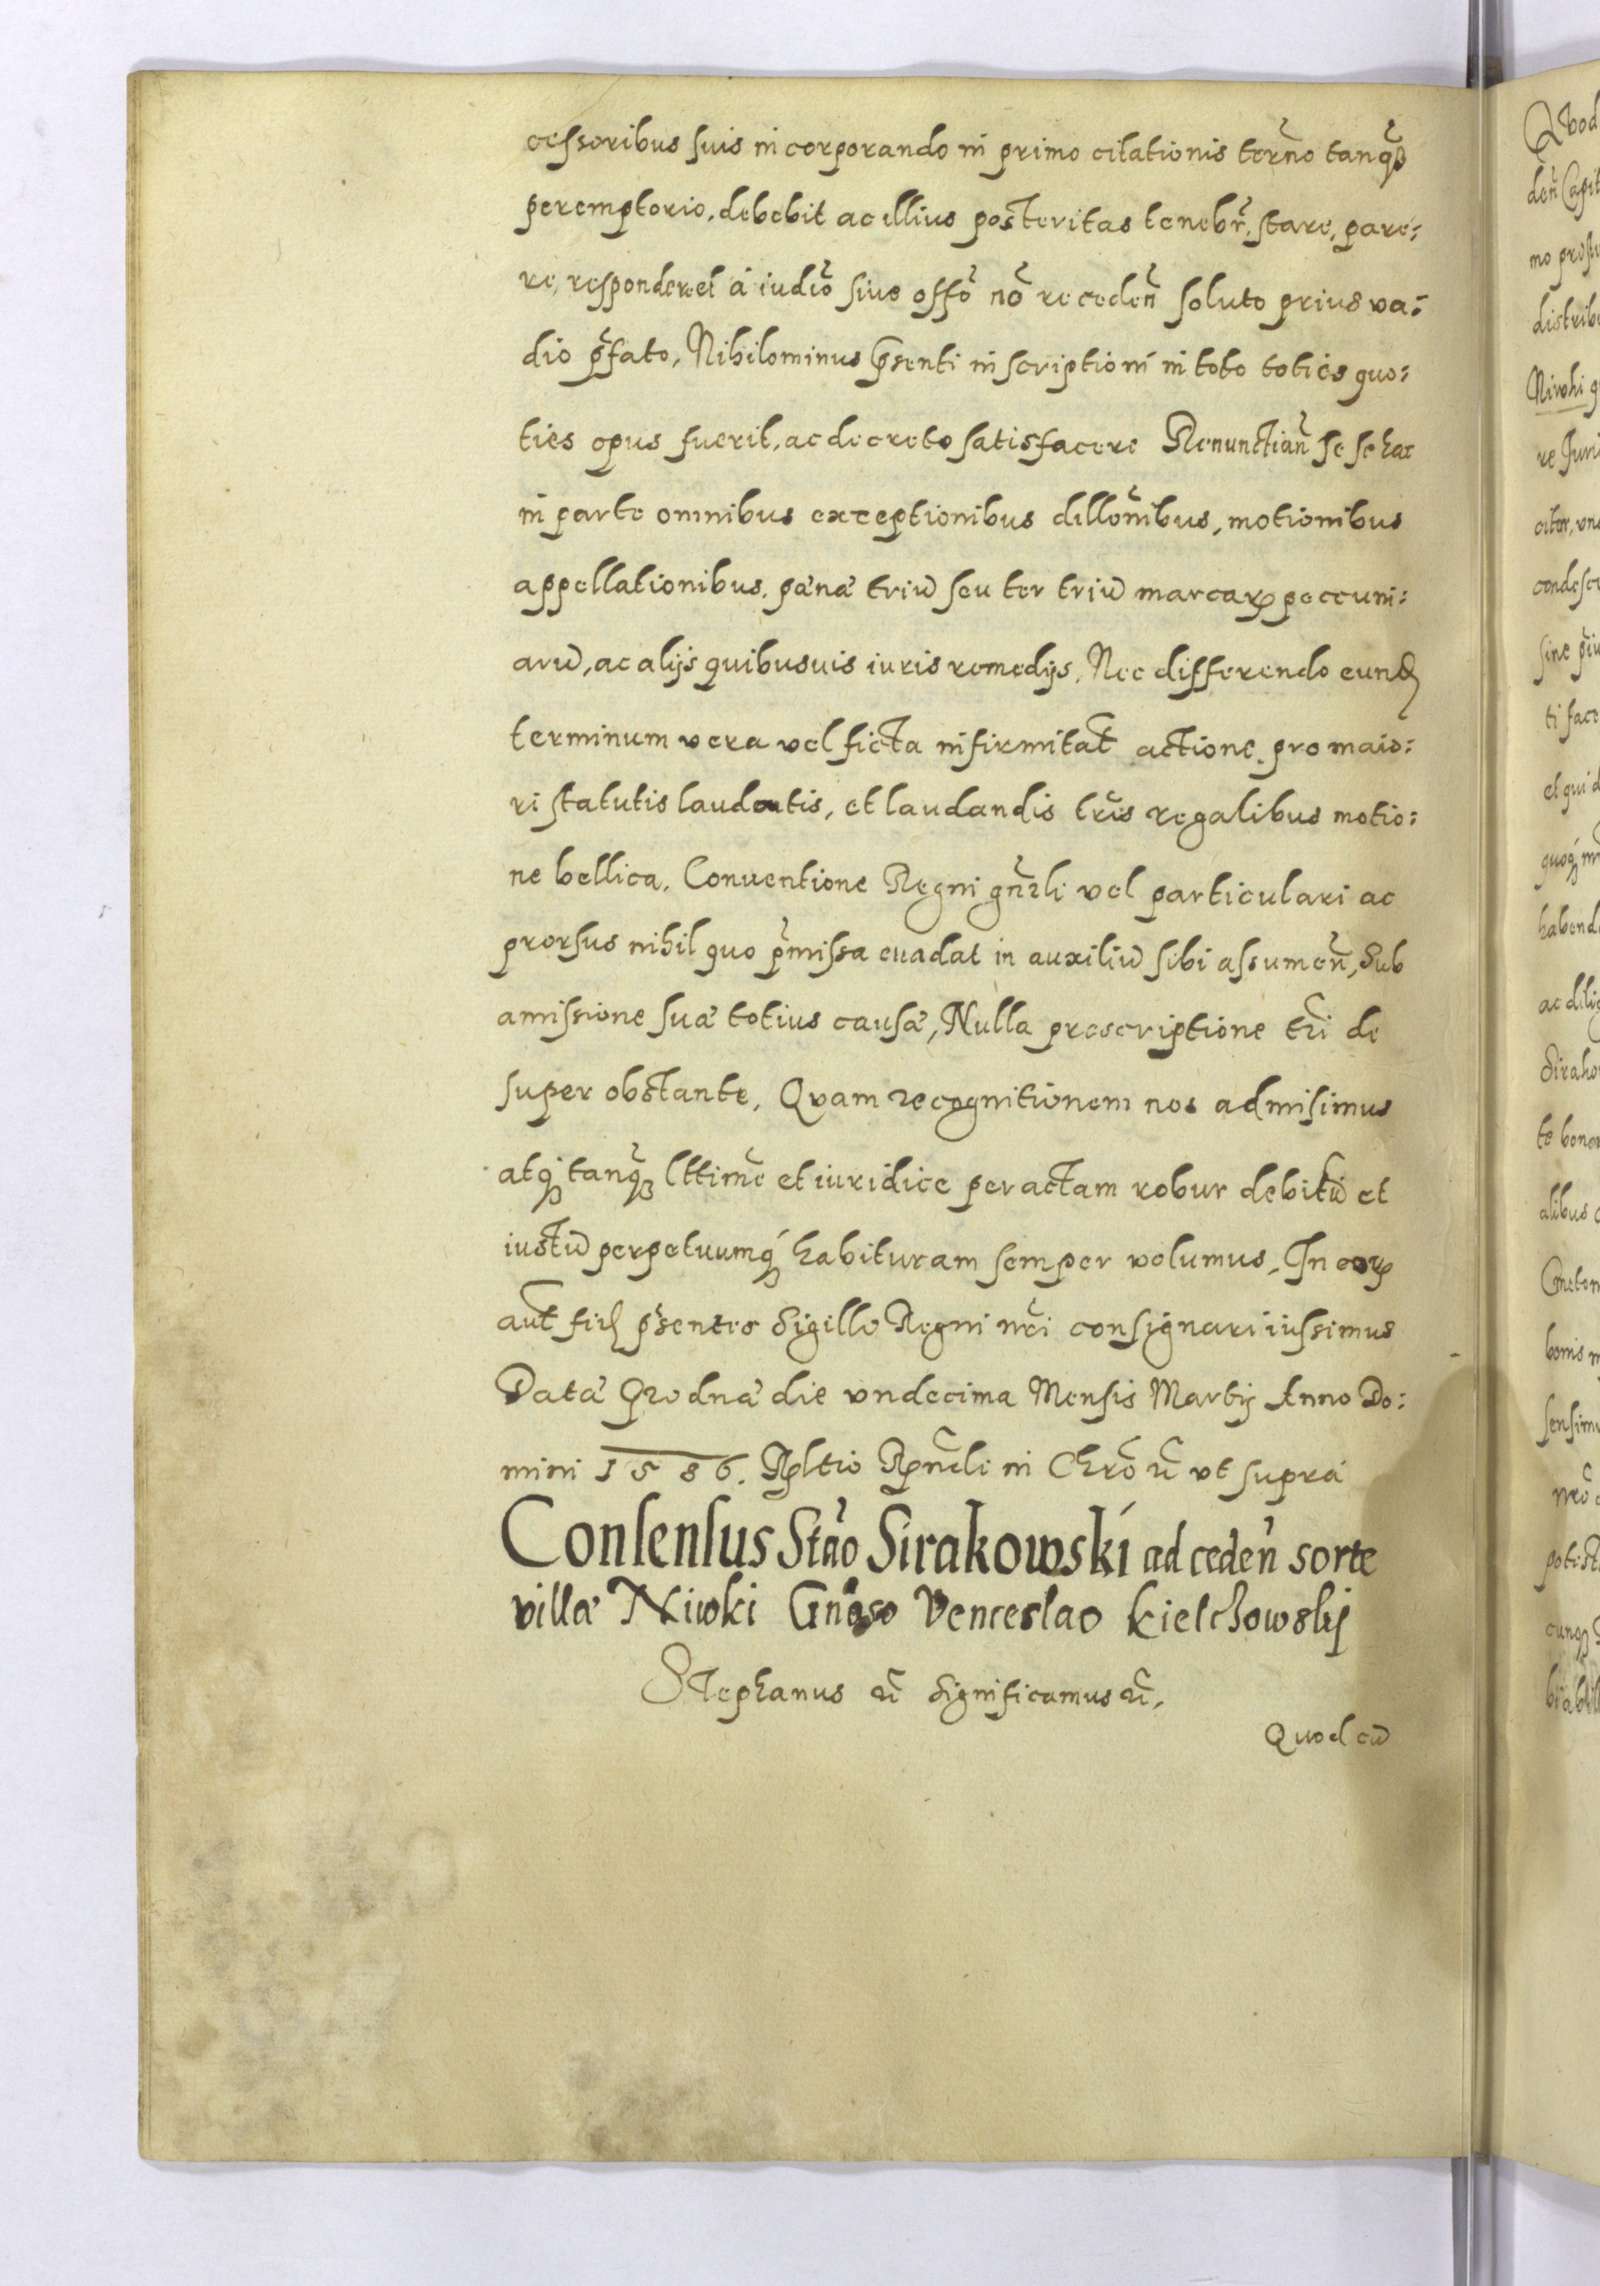 cessoribus suis incorporando in primo citationis term̃no tanq̃
peremptorio, debebit ac illius posteritas tenebr̃, stare, pare:
re, responder et á iudio͂ siue offo͂ no͂ receden̄ soluto prius va:
dio p̃fato, Nihilominus p̃senti inscriptioni in toto toties quo:
ties opus fuerit, ac decreto satisfacere Renunctian̄ se se hac
in parte omnibus exceptionibus dillonĩbus, motionibus
appellationibus. pœna triū seu ter triū marcaꝝ peccuni:
arū, ac alijs quibusuis iuris remedijs, Nec differendo eund
terminum vera vel ficta infirmitat̃ actione pro maio:
ri statutis laudatis, et laudandis tr̃is regalibus motio:
ne bellica, Conuentione Regni gn̄rli vel particulari ac
prorsus nihil quo p̃missa euadat in auxiliū sibi assumen̄, Sub
amissione suæ totius causæ, Nulla prescriptione tr̃i de
super obstante, Quam recognitionem nos admisimus
atq́ꝫ tanq̃ꝫ lttimẽ et iuridice peractam robur debitū et
iustū perpetuumq́ꝫ habituram semper volumus, In eoꝝ
aut̃ fid p̃sentes Sigillo Regni nr̃i consignari iussimus
Datæ Grodnæ die vndecima Mensis Martij Anno Do:
mini 1586. Rltio Rn̄di in Chro͂ ꝛc̃ vt supra
Consensus Stão Sirakowski ad ceden̄ sorte
villæ Niwki Gnõso Venceslao Kielchowskij
Stephanus ꝛc̃ Significamus ꝛc̃,
Quod cū
Quod
den̄ Capit
mo
distribu
Niwki
re Iuri
citer,
condesce
sine
ti face
et qui
quoqꝫ
habend
ac dilig
Sirako
te bonor
alibus
bonis
sensimu
cunqꝫ